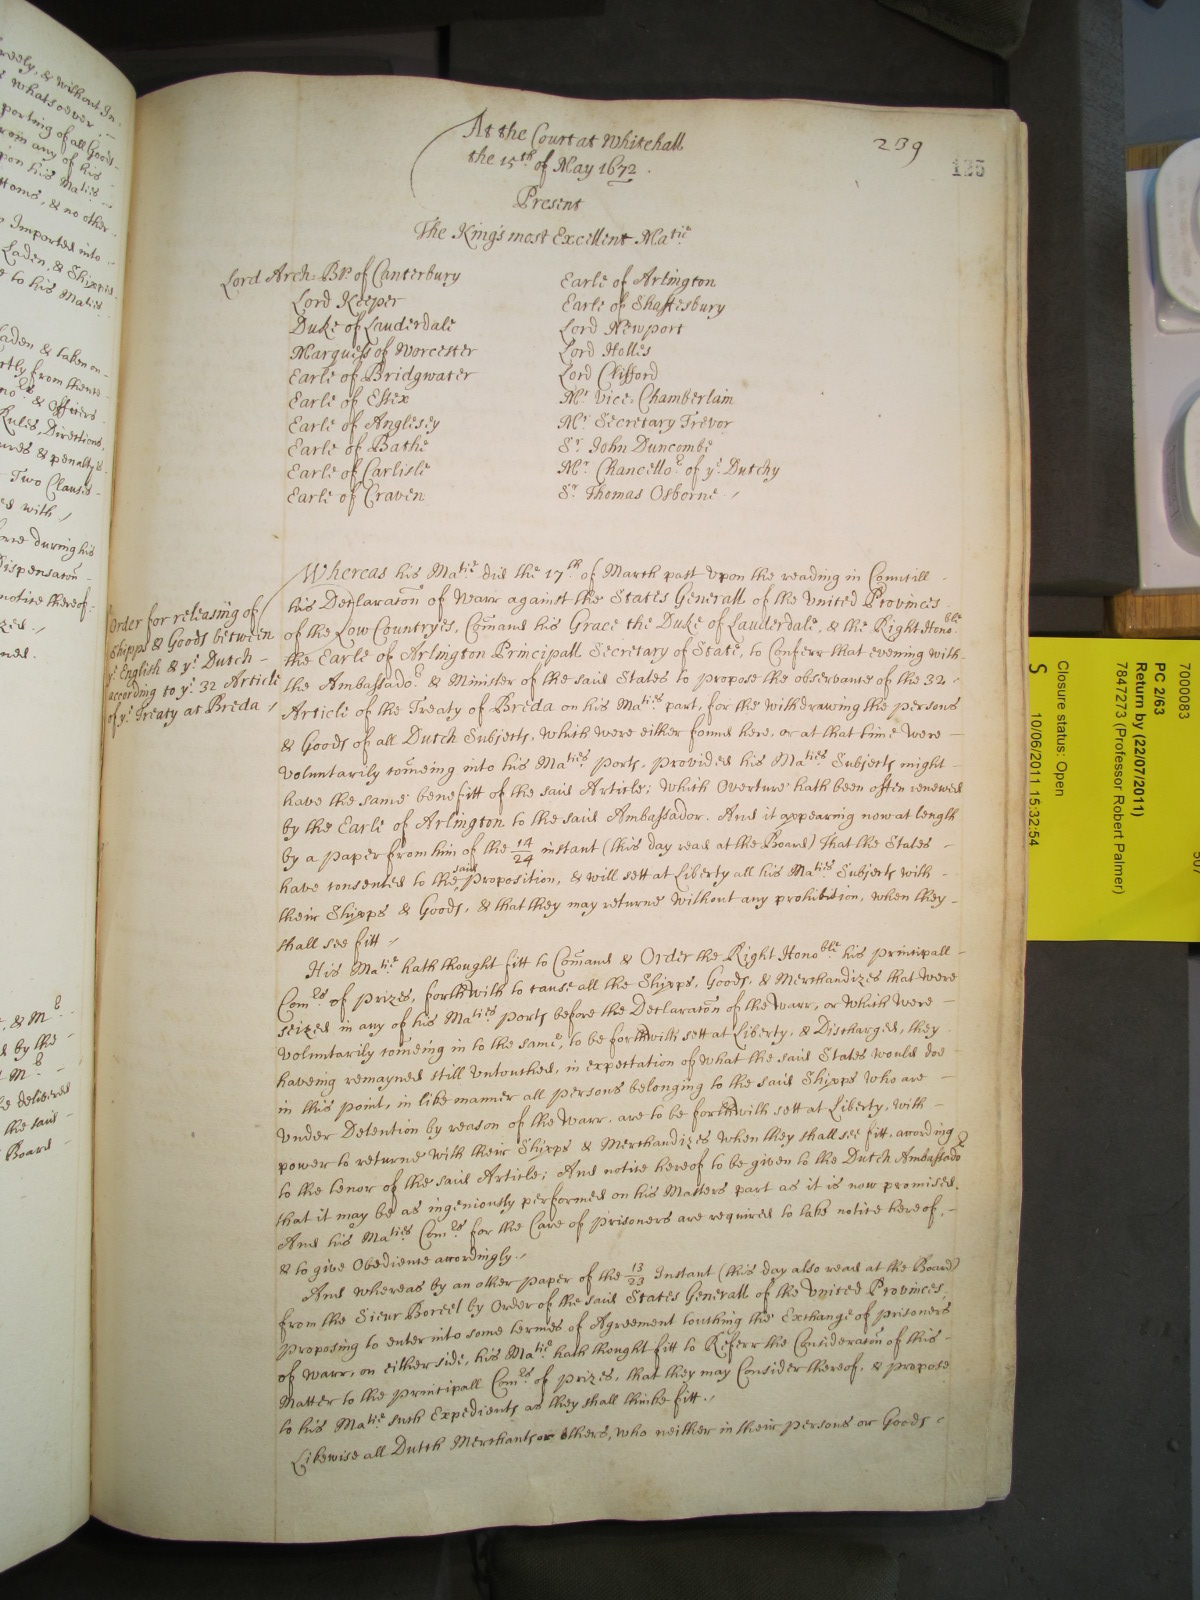 At the Court at Whitehall
the 15th of May 1672.
239
125
Present
The King's most Excellent Matie
Lord Arch: BP of Canterbury
Lord Keeper
Duke of Lauderdale
Marquess of Worcester
Earle of Bridgwater
Earle of Essex
Earle of Anglesey
Earle of Bathe
Earle of Carlisle
Earle of Craven
Earle of Arlington
Earle of Shaftesbury
Lord Newport
Lord Holles
Lord Clifford
Mr Vice-Chamberlain
Mr Secretary Trevor
Sr John Duncombe
Mr Chancellor of ye Dutchy
Sr Thomas Osborne
Order for releasing of
Shipps & Goods between
ye English & ye Dutch
according to ye 32 Article
of ye Treaty at Breda
Whereas his Matie did the 17th of March past upon the reading in Councill
his Declaraton of Warr against the States Generall of the United Provinces
of the Low Countryes, Comand his Grace the Duke of Lauderdale, & the Right Honoble
the Earle of Arlington Principall Secretary of State, to Conferr that evening with
the Ambassador & Minister of the said States to propose the observance of the 32
Article of the Treaty of Breda on his Maties part, for the withdrawing the persons
& Goods of all Dutch Subjects, which were either found here, or at that time were
voluntarily comeing into his Maties ports, provided his Maties Subjects might
have the same benefitt of the said Article; Which Overture hath been often renewed
by the Earle of Arlington to the said Ambassador. And it appearing now at length
by a paper from him of the 14/24 instant (this day read at the Board) That the States
have consented to the said proposition, & will sett at Liberty all his Maties Subjects with
their Shipps & Goods, & that they may returne without any prohibition, when they
shall see fitt
His Matie hath thought fitt to Comand & Order the Right Honoble his principall
Comrs of prizes, forthwith to cause all the Shipps, Goods, & Merchandizes that were
seized in any of his Maties ports before the Declaraton of the Warr, or Which were
voluntarily comeing in to the same, to be forthwith sett at Liberty, & Discharged, they
haveing remayned still untouched, in expectation of what the said States would doe
in this point, in like manner all persons belonging to the said Shipps who are
under Detention by reason of the Warr, are to be forthwith sett at Liberty, with
power to returne with their Shipps & Merchandizes when they shall see fitt, according
to the tenor of the said Article; And notice hereof to be given to the Dutch Ambassador
that it may be as ingeniously performed on his Masters part as it is now promised.
And his Maties Comrs for the Care of prisoners are required to take notice hereof,
& to give Obedience accordingly.
And whereas by an other paper of the 13/23 Instant (this day also read at the Board)
from the Sieur Boreel by Order of the said States Generall of the United Provinces,
proposing to enter into some termes of Agreement touching the Exchange of prisoners
of warr, on either side, his Matie hath thought fitt to Referr the Consideraton of this
Matter to the principall Comrs of prizes, that they may Consider thereof, & propose
to his Matie such Expedients as they shall thinke fitt.
Likewise all Dutch Merchants or others, who neither in their persons or Goods
reely, & without In
whatsoever
porting of all Goods
rom any of his
pon his Maties
ttoms, & no other
Imported into
Laden, & Shipped
e to his Maties
aden & taken on
rtly from thence
& Officers
Rules, Directions,
ures & penaltys
Two Clauses
ed with
ore during his
Dispensaton
notice thereof
ned.
& Mr
d by the
Mr
be delivered
the said
Board
7000083
PC 2/63
Return by (22/07/2011)
7847273 (Professor Robert Palmer)
Closure status: Open
S 10/06/2011 15:32:54